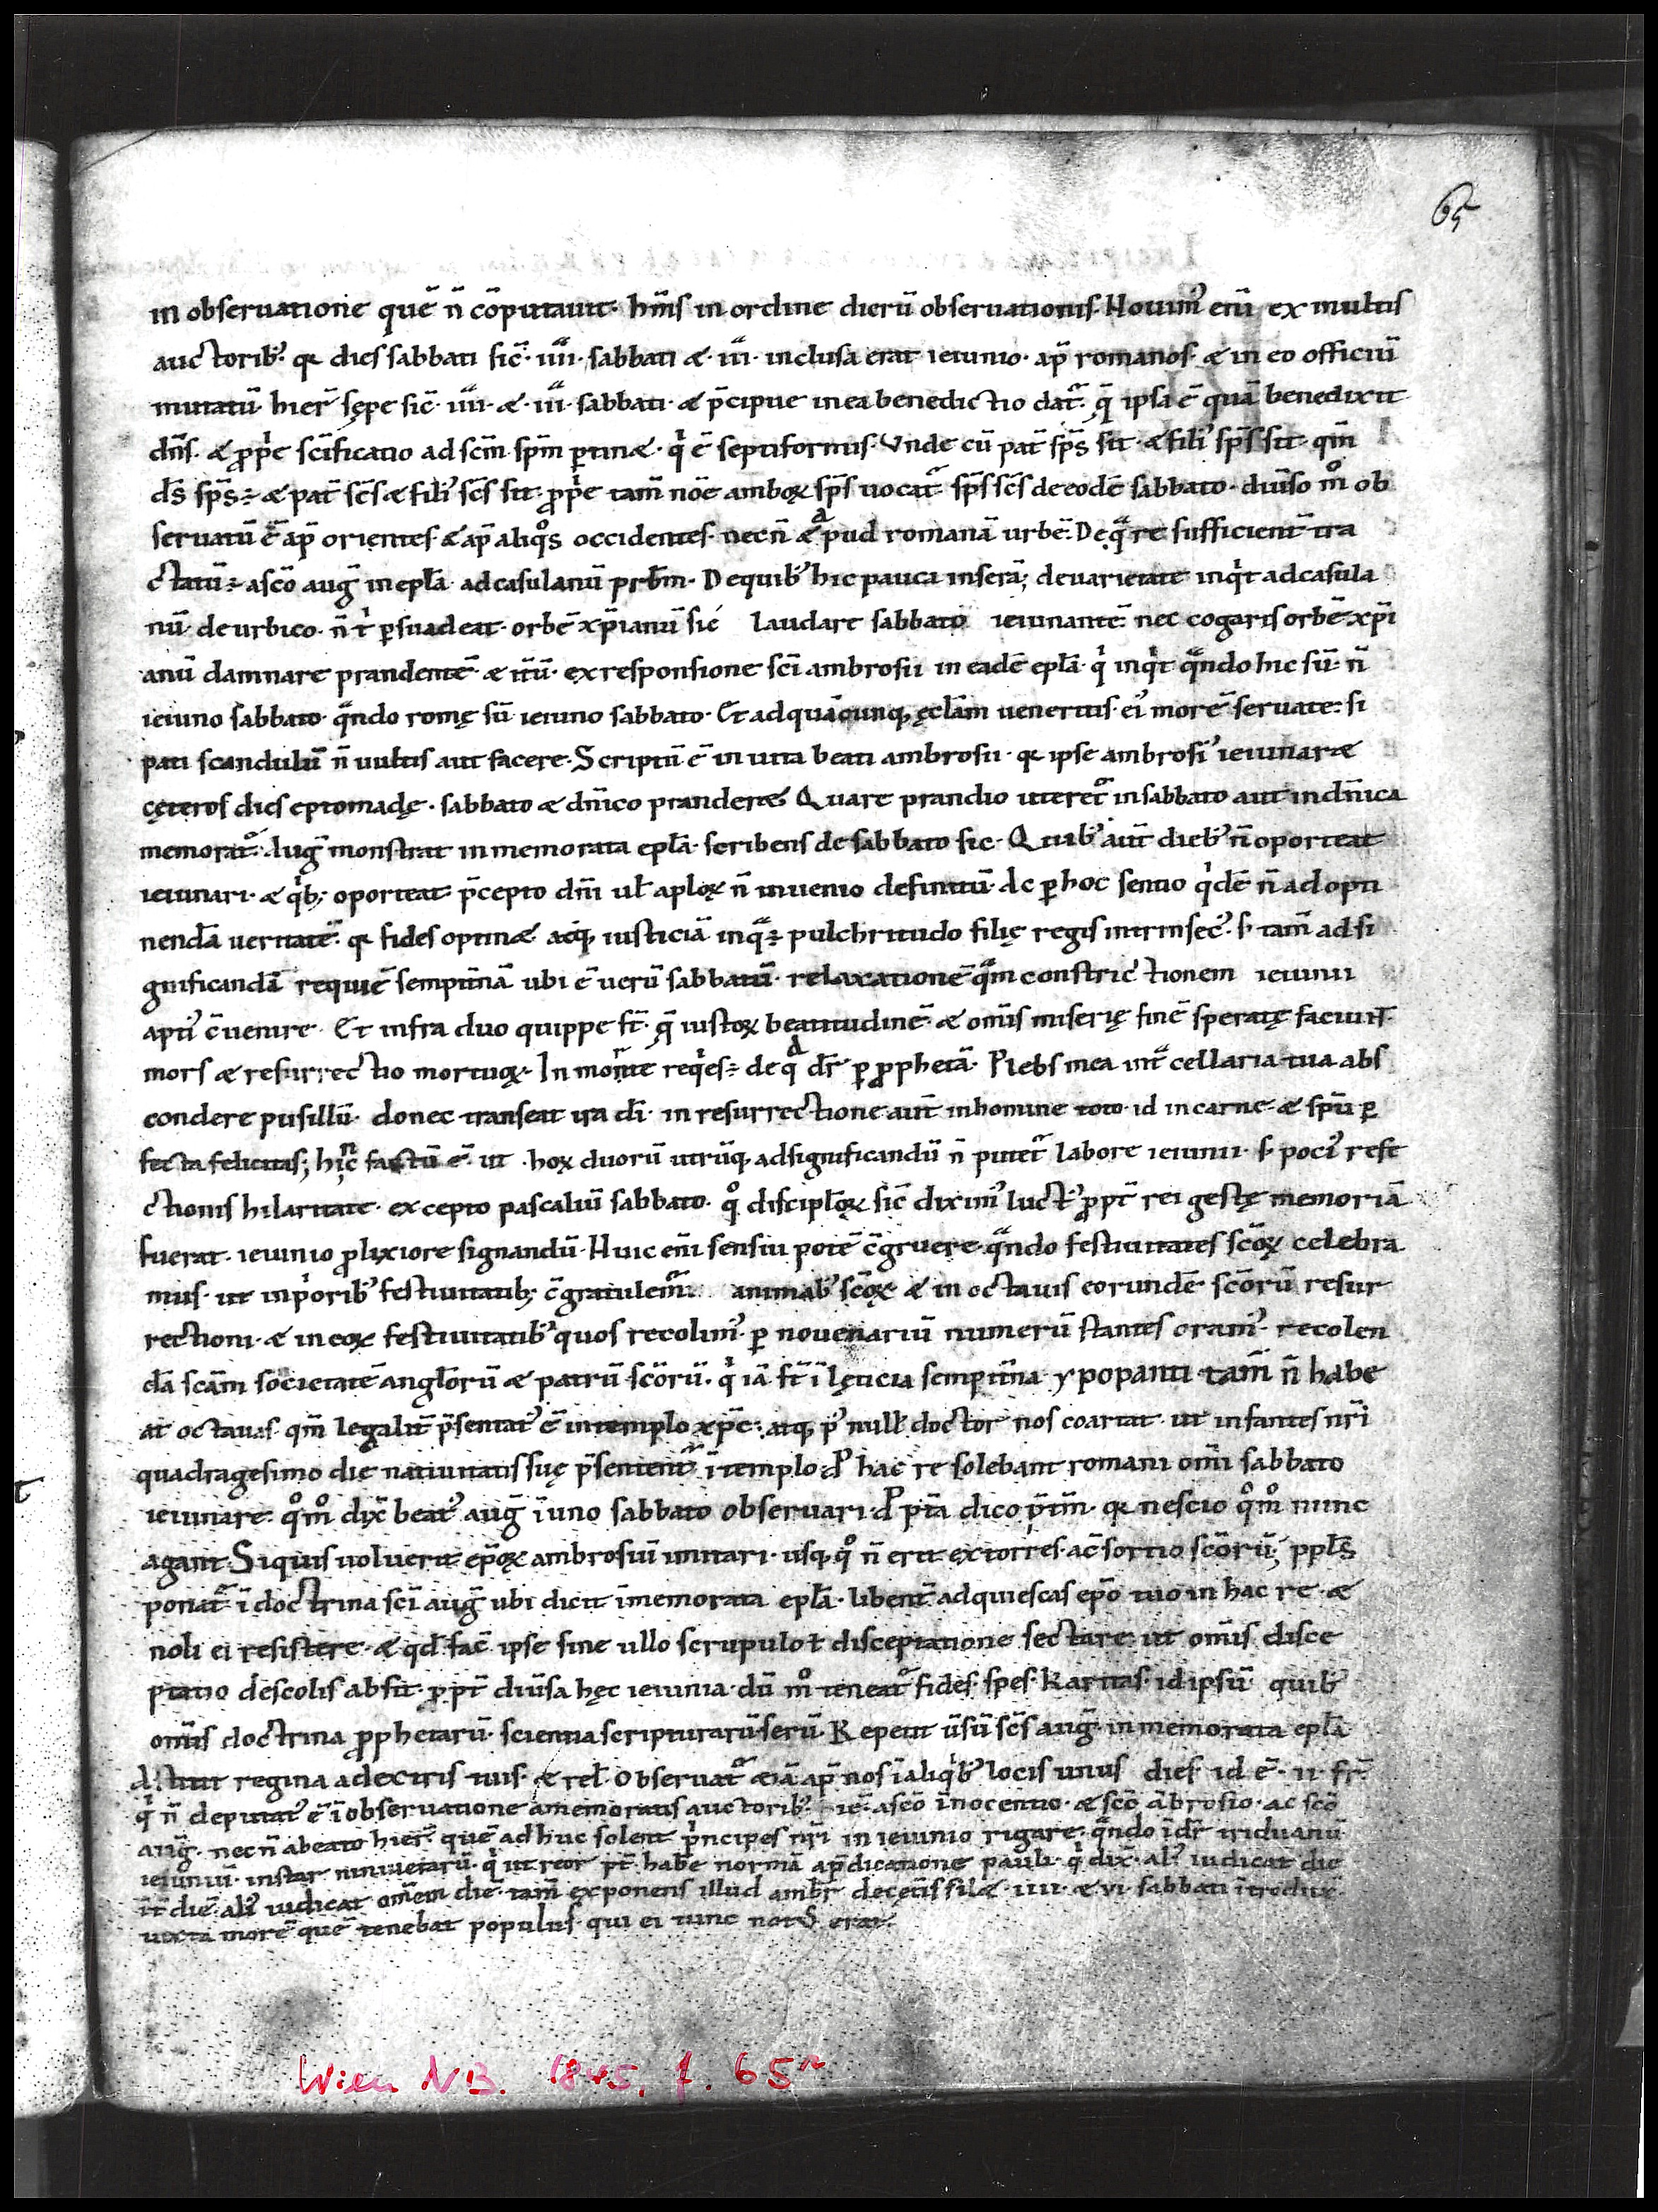 65
in obseruatione quē n̄ cōputauit · hīns in ordine dierū obseruationis · Nouim᾽ enī ex multis
auctorib᾽ · qꝫ dies sabbati sic̄ · iiii · sabbati & · iii · inclusa erat ieiunio · ap̄ romanos · & in eo officiū
mutatū · hier̄ sępe sic̄ · iiii · & · iii · sabbati · & p̄cipue in ea benedictio dat᷑ · q̄ ipsa ē quā benedixit
dn̄s · & ꝓp̄e sc̄ificatio ad sc̄m sp̄m ꝑtin& · qͥ ē septiformis · Vnde cū pat̄ sp̄s sit · & fili᾽ sp̄s sit · qm̄
ds̄ sp̄s ÷ & pat̄ sc̄s & fili᾽ sc̄s sit · ꝓp̄e tam̄ noē amboꝝ sp̄s uocat᷑ sp̄s sc̄s de eodē sabbato · diuiso mͦ ob
seruatū ē ap̄ orientes · & ap̄ aliqͦs occidentes · necn̄ & apud romanā urbē · De qͣ re sufficient̄ tra
ctatū ÷ a sc̄o auḡ in epl̄a ad casulanū prb̄m · De quib᾽ hic pauca inserā; de uarietate inqͥt ad casula
nū · de urbico · n̄ tͥ ꝑsuadeat · orbē xp̄ianū sic laudare sabbato ieiunantē · nec cogaris orbē xp̄i
anū damnare prandentē · & it̄ū · ex responsione sc̄i ambrosii in eadē epl̄a qͥ inqͥt qͣndo hic sū · n̄
ieiuno sabbato · qͣndo romę sū ieiuno sabbato · Et ad quācunqꝫ ęcl̄am ueneritis · ei᾽ morē seruate · si
pati scandalū n̄ uultis aut facere · Scriptū ē in uita beati ambrosii · qꝫ ipse ambrosi᾽ ieiunar&
cęteros dies eptomadę · sabbato & dn̄ico prander& · Quare prandio uteret᷑ in sabbato aut in dn̄ica
memorat᾽ Auḡ monstrat in memorata epl̄a · scribens de sabbato sic · Quib᾽ aut̄ dieb᾽ n̄ oporteat
ieiunari · & qͥbꝫ oporteat · p̄cepto dn̄i ul̄ aploꝝ n̄ inuenio definitū · Ac ꝑ hoc sentio qͥdē n̄ ad opti
nendā ueritatē · qꝫ fides optin& atqꝫ iusticiā inqͣ ÷ pulchritudo filię regis intrinsec᾽ · s; tam̄ ad si
gnificandā requiē sempit̄nā ubi ē uerū sabbatū · relaxationē qͣm constrictionem ieiunii
apti᾽ c̄uenire · Et infra duo quippe st̄ · q̄ iustoꝝ beatitudinē · & om̄is miserię finē speratę faciunt̄
mors & resurrectio mortuoꝝ · In morte reqͥes ÷ de qͣ dr̄ ꝑ ꝓphetā · Plebs mea intͣ cellaria tua abs
condere pusillū · donec transeat ira di̅ · in resurrectione aut̄ in homine toto · id in carne · & sp̄u ꝑ
fecta felicitas; hinc factū ē · ut hoꝝ duorū utrūqꝫ ad significandū n̄ putet᷑ labore ieiunii · s; poci᾽ refe
ctionis hilaritate · excepto pascaliū sabbato · qͦ discipl̄oꝝ sic̄ diximᷤ luct᾽ ꝓpt̄ rei gestę memoriā
fuerat · ieiunio ꝓlixiore signandū · Huic enī sensui potē c̄gruere · qͣndo festiuitates sc̄oꝝ celebra
mus · ut in pͥorib᾽ festiuitatibꝫ c̄gratulem᷑ animab᾽ sc̄oꝝ & in octauis eorundē sc̄orū resur
rectioni · & in eoꝝ festiuitatib᾽ quos recolim᾽ · ꝑ nouenariū numerū stantes oram᾽ · recolen
dā sc̄am societatē angl̄orū & patrū sc̄orū · qͥ iā st̄ ī lęticia sempit̄na ypopanti tam̄ n̄ habe
at octauas · qm̄ legalit̄ p̄sentat᾽ ē in templo xp̄c · atqꝫ p᾽ null᾽ doctor nos coartat · ut infantes nr̄i
quadragesimo die natiuitatis suę p̄sentent᷑ ī templo · P hac re solebant romani om̄i sabbato
ieiunare · qͦmͦ dix̄ beat᾽ auḡ ī uno sabbato obseruari · P p̄tā dico p̄tm̄ · qꝫ nescio qͦmͦ nunc
agant · Siquis uoluerit ep̄oꝝ ambrosiū imitari · usqꝫ qͦ n̄ erit extorres · a c̄sortio sc̄orū; ppl̄s
ponat᷑ ī doctrina sc̄i auḡ ubi dicit ī memorata epl̄a · libent̄ adquiescas ep̄o tuo in hac re · &
noli ei resistere · & qd̄ fac̄ ipse sine ullo scrupulo ł disceptatione sectare · ut om̄is disce
ptatio de scolis absit · ꝓpt̄ diūsa hęc ieiunia · dū mͦ teneat᷑ fides · spes · Karitas · id ipsū quib᾽
om̄is doctrina ꝓphetarū · scientia scripturarū seruit · Repetit ūsū sc̄s auḡ · in memorata epl̄a
Astitit regina a dextris tuis · & rel̄ · Obseruat᷑ &iā ap̄ nos ī aliqͥb᾽ locis unus dies id ē · ii · fr̄
qͥ n̄ deputat᾽ ē ī obseruatione a memoratis auctorib᾽ · iē · a sc̄o īnocentio · & sc̄o ābrosio · ac sc̄o
auḡ · nec n̄ a beato hier̄ · quē adhuc solent pͥncipes nr̄i in ieiunio rigare · qͣndo īdr̄ triduanū
ieiuniū · instar niniuetarū · qͥ ut reor pt̄ habe normā a p̄dicatione pauli · qͥ dix̄ · ali᾽ iudicat die
īt̄ diē · ali᾽ iudicat om̄em diē · tam̄ exponens illud ambr̄ de cęt̄is sil& · iiii · & vi · sabbati ītroduxit
iuxta morē quē tenebat populus · qui ei tunc not᾽ erat
Wien NB. 1845, f. 65r